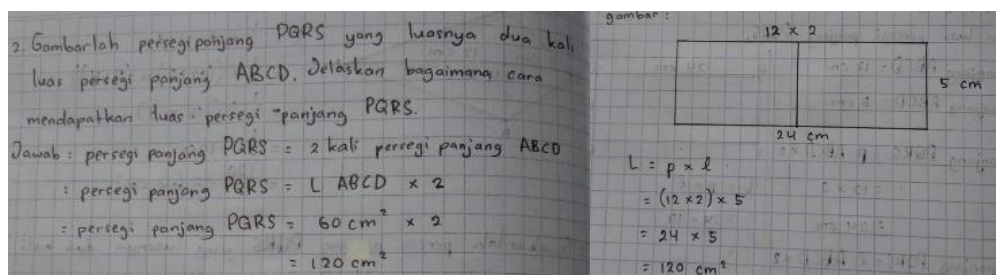 2. Gambarlah persegi panjang PQRS yang luasnya dua kali
luas persegi panjang ABCD. Jelaskan bagaimana cara
mendapatkan luas persegi panjang PQRS.
Jawab : persegi panjang PQRS = 2 kali persegi panjang ABCD
: persegi panjang PQRS = L ABCD × 2
= persegi panjang PQRS = 60 cm² × 2
= 120 cm²
gambar :
12 × 2
5 cm
24 cm
L = p × l
= (12 × 2) × 5
= 24 × 5
= 120 cm²